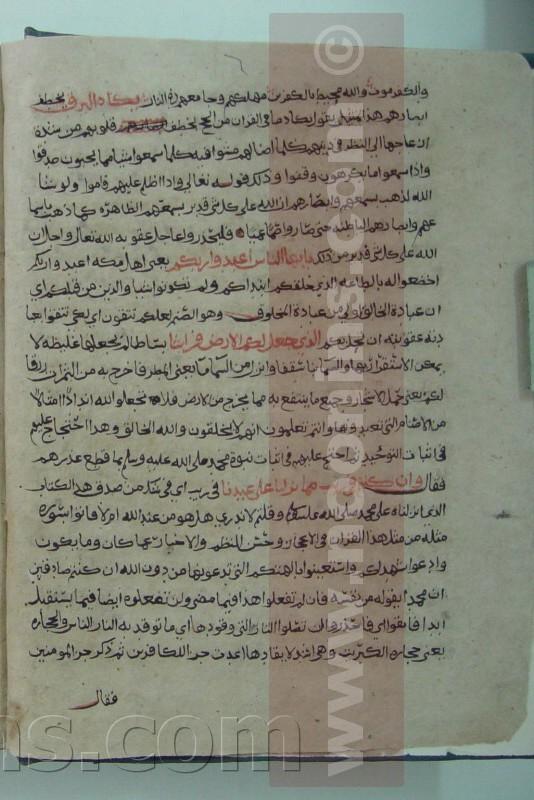 والكفر موت والله محيط بالكفرين مهلكهم وجامعهم في النار يكاد البرق يخطف
ابصارهم هذا مثل يقول يكاد ما في القران من الحج يخطف قلوبهم من شدة
ازعاجها الى النظر في دينهم كلما اضا لهم مشوا فيه كلما سمعوا شيا مما يحبون صدقوا
واذا سمعوا ما يكرهون وقفوا وذلك قوله تعالى واذا اظلم عليهم قاموا ولو شا
الله لذهب بسمعهم وابصارهم ان الله على كل شي قدير بسمعهم الظاهرة كما ذهب باسما
عهم وابصارهم الباطنة حتى صاروا صما عميا فليحذروا عاجل عقوبة الله تعالى واجله ان
الله على كل شي قدير من ذلك يايها الناس اعبدوا ربكم يعني اهل مكه اعبدوا ربكم
اخضعوا له بالطاعه الذي خلقكم ابتداكم ولم تكونوا شيا والذين من قبلكم اي
ان عبادة الخالق اولى من عبادة المخلوق وهو الصنم لعلكم تتقون اي لكي تتقوا بعبا
دته عقوبته ان تحل بكم الذي جعل لكم الارض فراشا بساطا لم يجعلها غليظة لا
يمكن الاستقرار عليها والسما بنا سقفا وانزل من السما ما يعني المطر فاخرج به من الثمرات رزقا
لكم يعني حمل الاشجار وجميع ما ينتفع به مما يخرج من الارض فلا تجعلوا لله اندادا امثالا
من الاصنام التي تعبدونها وانتم تعلمون انهم لا يخلقون والله الخالق وهذا احتجاج عليهم
في اثبات التوحيد ثم احتج عليهم في اثبات نبوة محمد صلى الله عليه وسلم بما قطع عذرهم
فقال وان كنتم في ريب مما نزلنا على عبدنا في ريب اي في شك من صدق هذا الكتاب
الذي انزلناه على محمد صلى الله عليه وسلم وقلتم لا ندري هل هو من عند الله ام لا فاتوا بسورة
مثله من مثل هذا القران في الاعجاز وحسن النظم والاخبار عما كان وما يكون
وادعوا شهداكم واستعينوا بالهتكم التي تدعونها من دون الله ان كنتم صادقين
ان محمدا يقوله من نفسه فان لم تفعلوا هذا فيما مضى ولن تفعلوه ايضا فيما يستقبل
ابدا فاتقوا النار فاحذروا ان تصلوا النار التي وقودها اي ما توقد به النار الناس والحجاره
يعني حجارة الكبريت وهي اشد لايقادها اعدت للكافرين ثم ذكر جزا المومنين
فقال
www.mconfins.com
©
ns.com